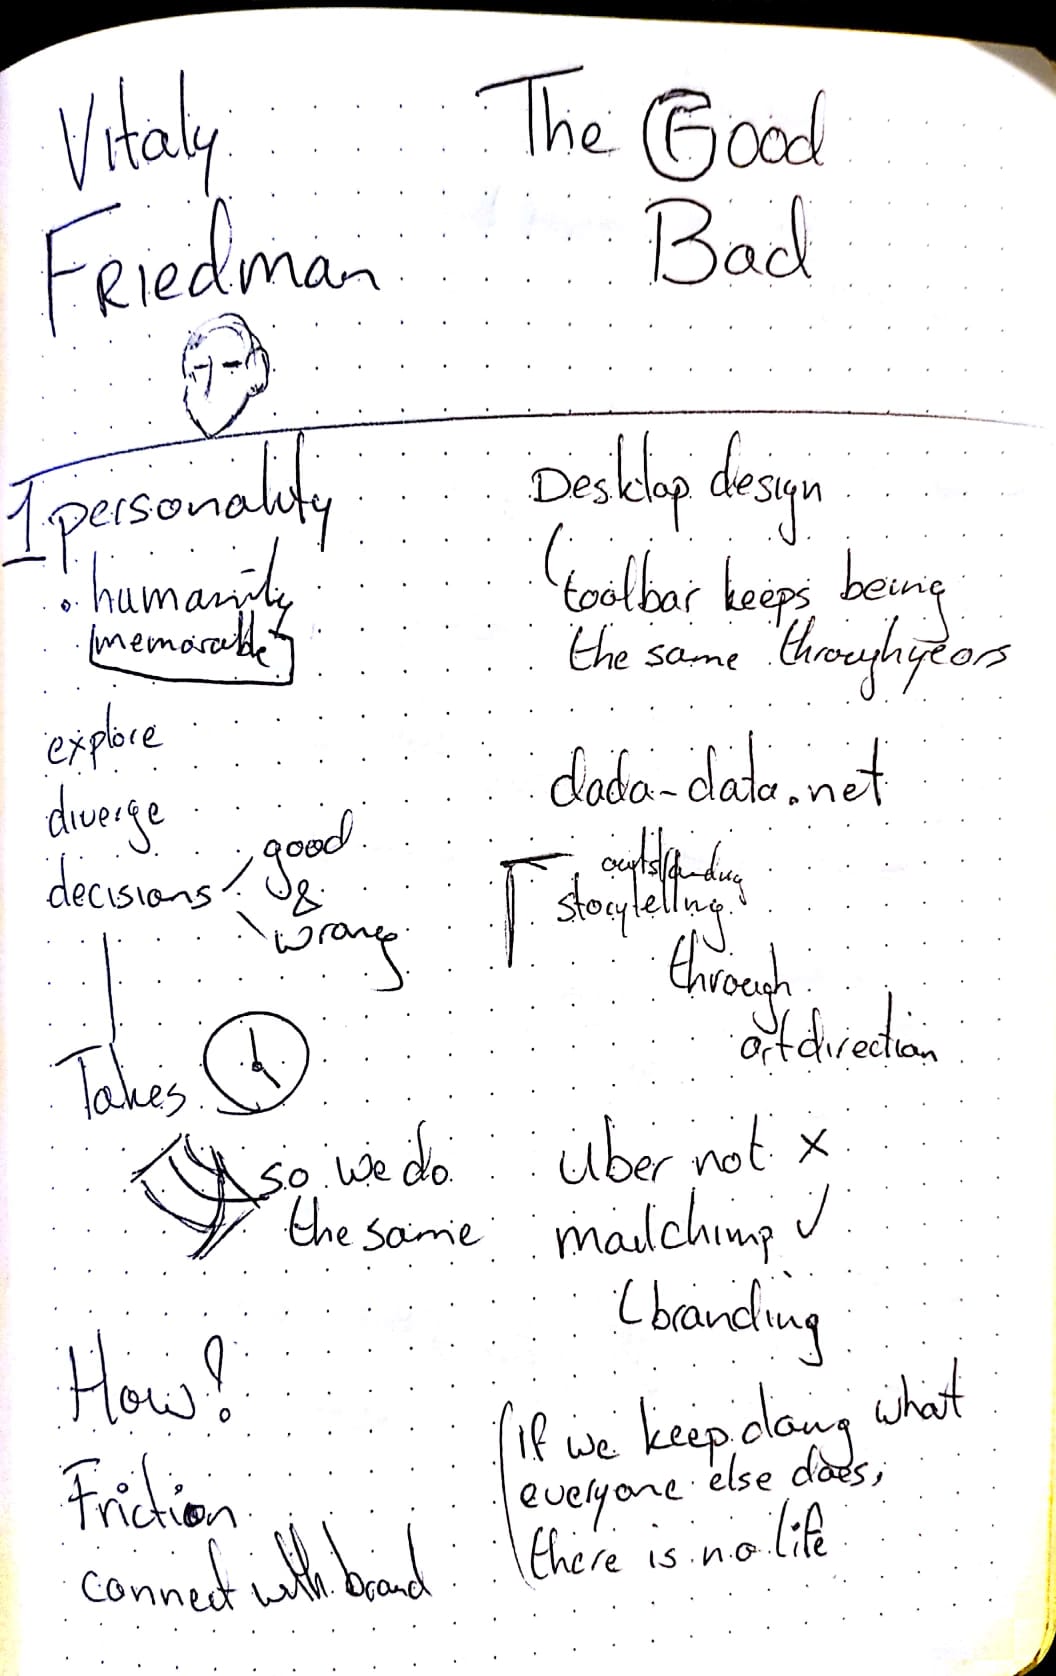 Vitaly
Friedman
The Good
Bad
1 personality
humanity
memorable
explore
diverge
decisions
good
&
wrong
Takes
so we do
the same
How?
Friction
connect with brand
Desktop design
toolbar keeps being
the same through years
dada-data.net
outstanding
storytelling
through
art direction
Uber not x
mailchimp ✓
branding
If we keep doing what
everyone else does,
there is no life